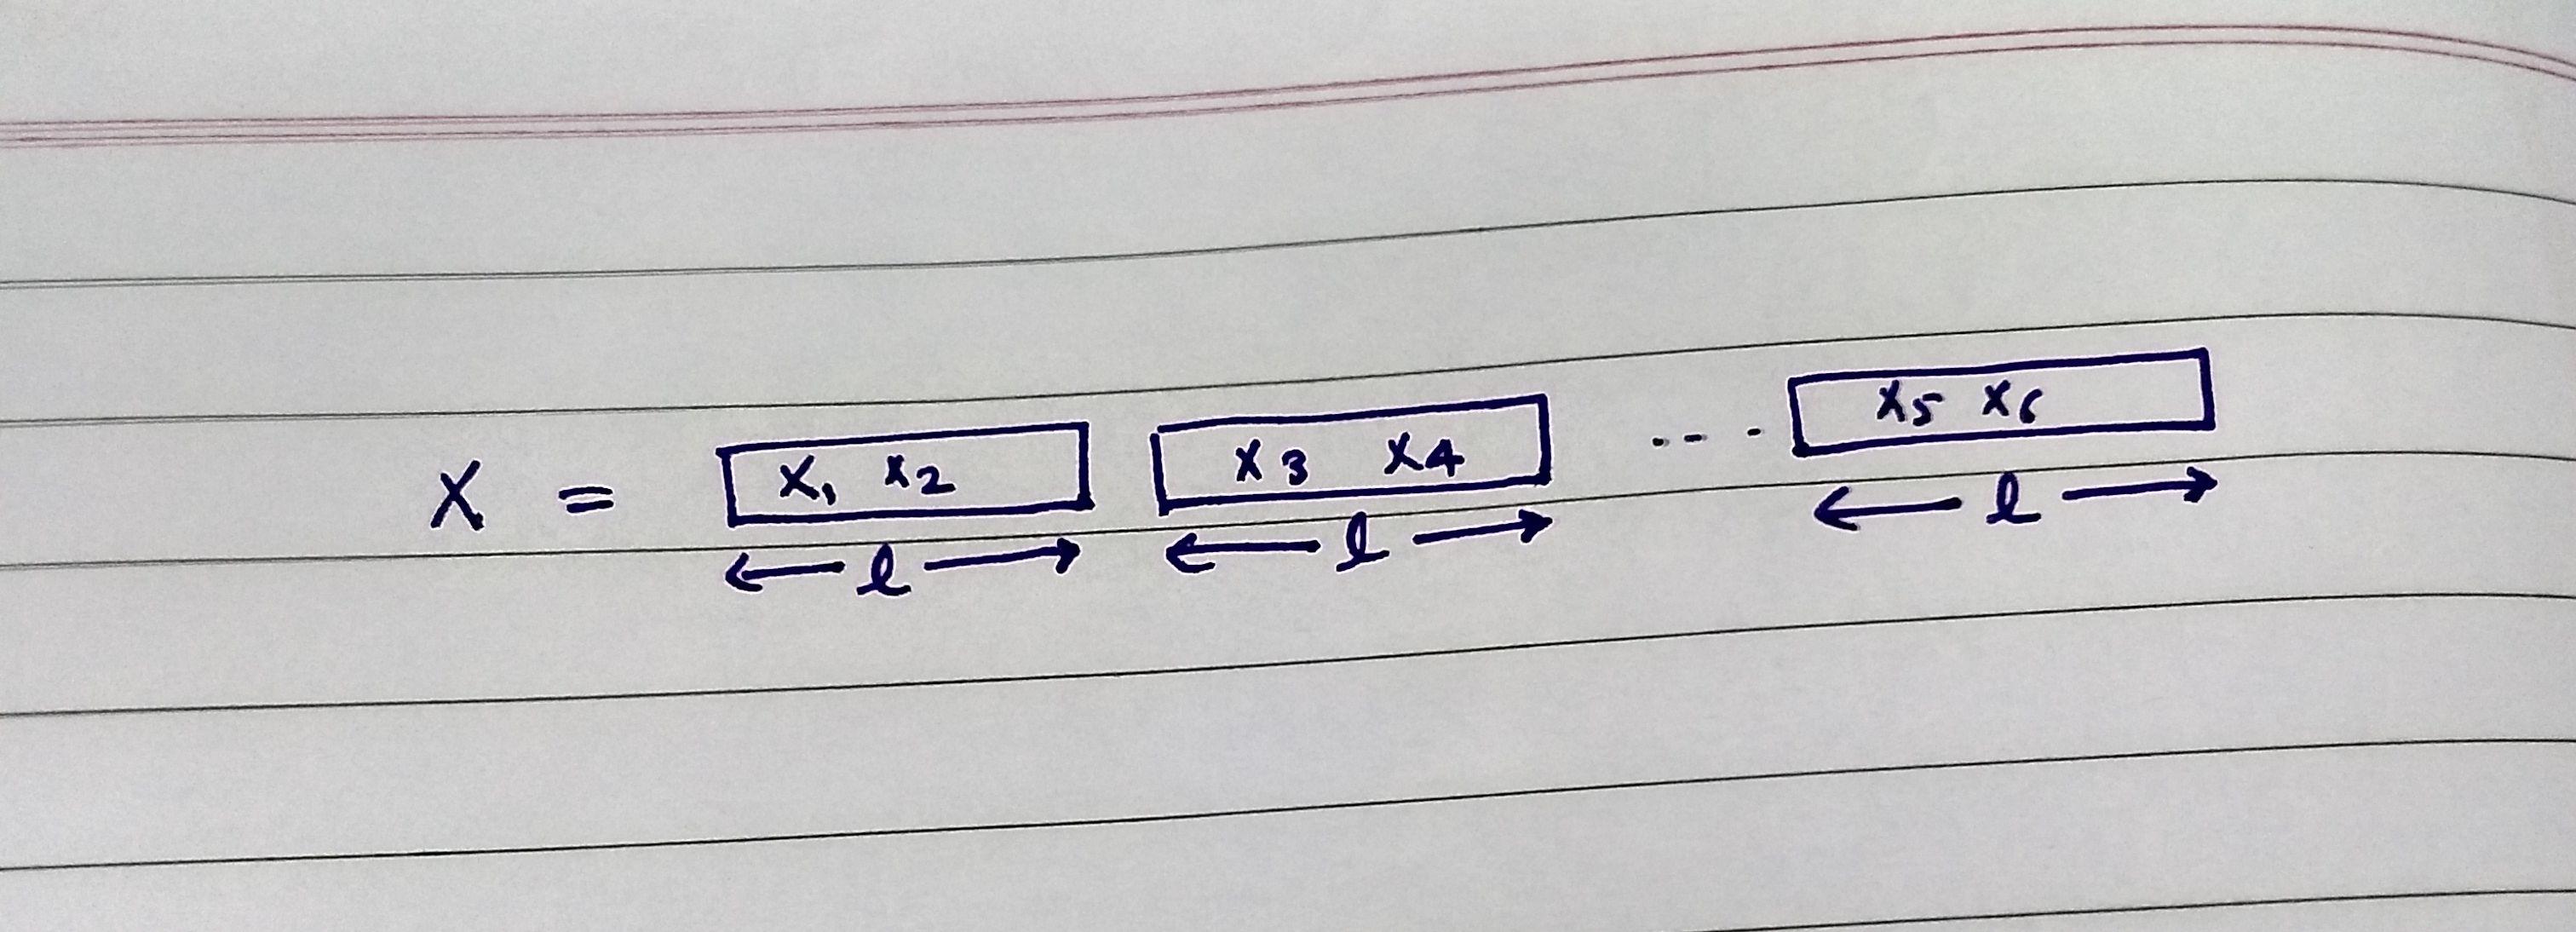 X = x₁ x₂ x₃ x₄ .... x₅ x₆
← l → ← l → ← l →